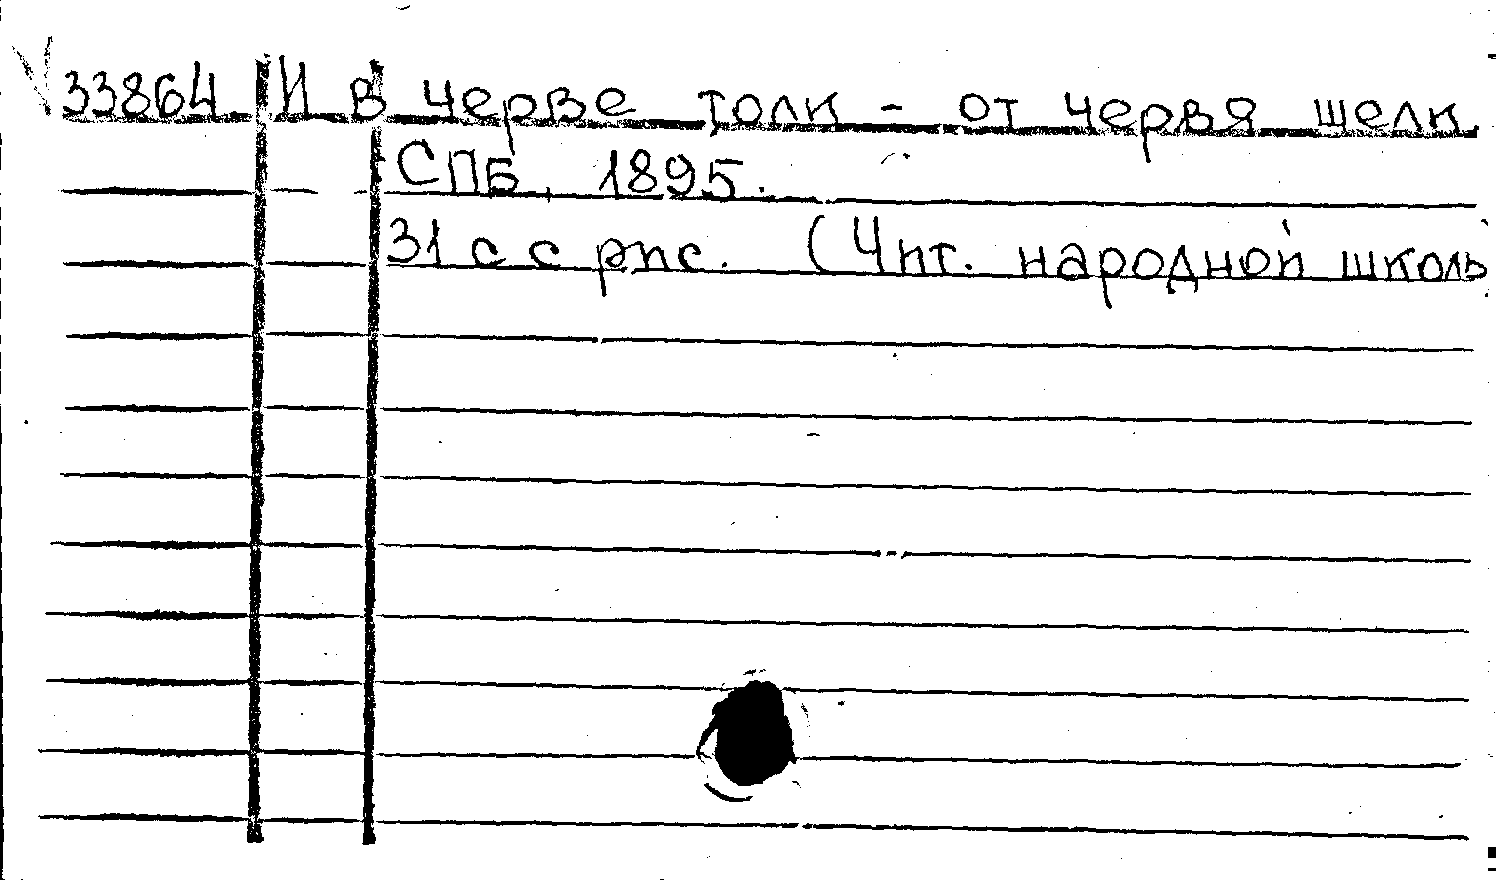 33864 И в черве толк - от червя шелк
СПБ, 1895.
31 с с рис. (Чит. народной школы